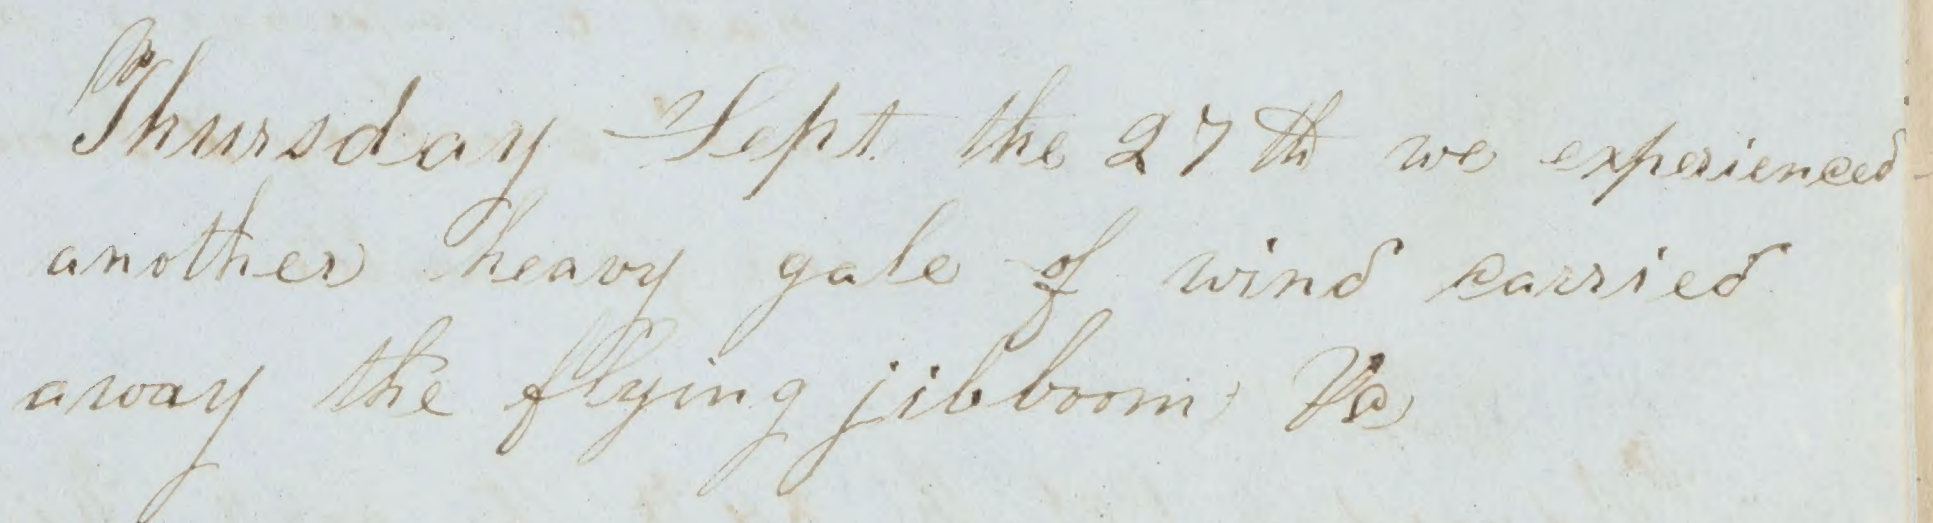 Thursday Sept. the 27th we experienced
another heavy gale of wind carried
away the flying jib boom &c